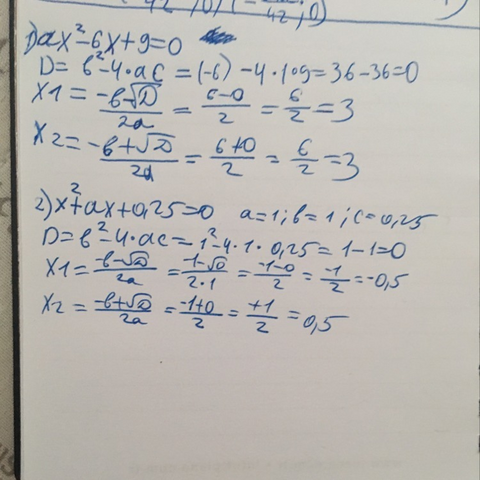 1) ax²-6x+9=0
D= b²-4·ac=(-6)-4·1·9=36-36=0
x1= -b-√D/2a = 6-0/2 = 6/2 =3
x2= -b+√D/2a = 6+0/2 = 6/2 =3
2) x²+ax+0,25=0 a=1; b=1; c=0,25
D=b²-4·ac=1²-4·1·0,25=1-1=0
x1= -b-√D/2a = -1-√0/2·1 = -1-0/2 = -1/2 =-0,5
x2= -b+√D/2a = -1+0/2 = +1/2 =0,5